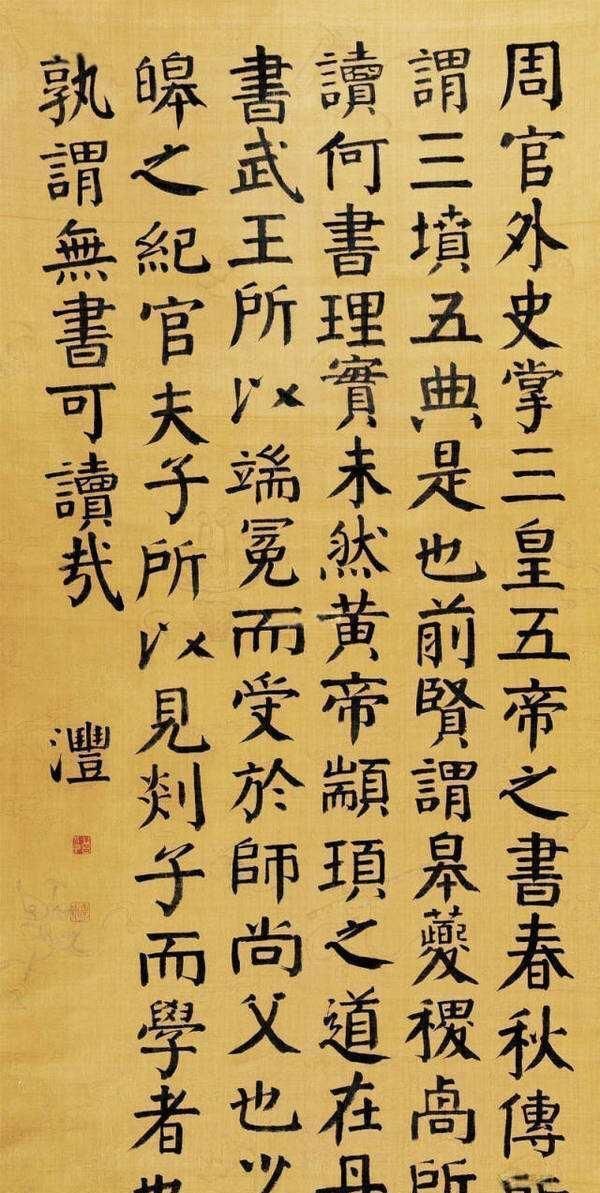 周官外史掌三皇五帝之書春秋傳所
謂三墳五典是也前賢謂皋夔稷卨所
讀何書理實未然黄帝顓頊之道在丹
書武王所以端冕而受於師尚父也少
皞之紀官夫子所以見剡子而學者也
孰謂無書可讀哉
灃